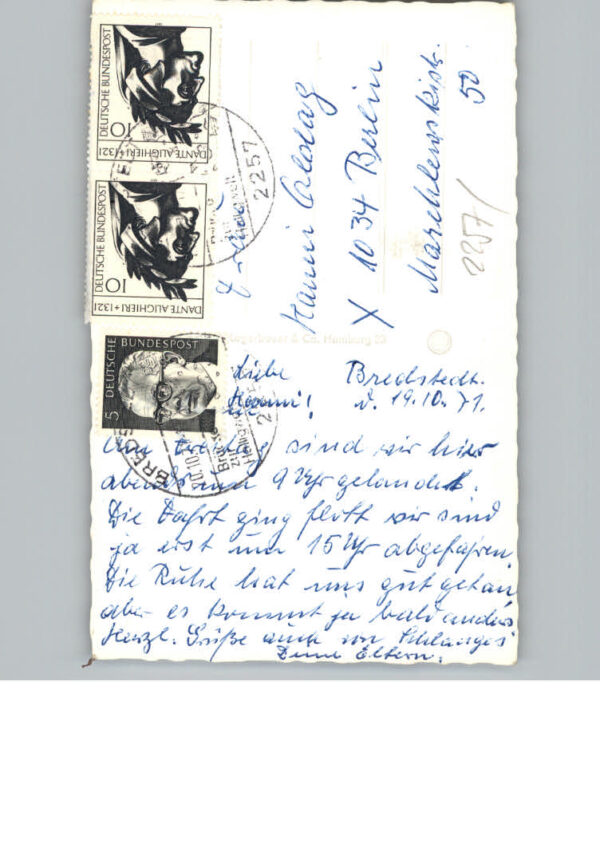 DEUTSCHE BUNDESPOST
10
DANTE ALIGHIERI +1321
DEUTSCHE BUNDESPOST
10
DANTE ALIGHIERI +1321
DEUTSCHE BUNDESPOST
5
2257
BREDS
Hanni
X 1034 Berlin
Marchlewskistr.
50
2257/
& Co. Hamburg
Liebe
Hanni!
Bredstedt.
d. 19.10.71.
Am Freitag sind wir hier
abends um 9 Uhr gelandet.
Die Fahrt ging flott wir sind
ja erst um 15 Uhr abgefahren.
Die Ruhe hat uns gut getan,
aber es kommt ja bald anders
Herzl. Grüße auch von Schlanges
Deine Eltern.